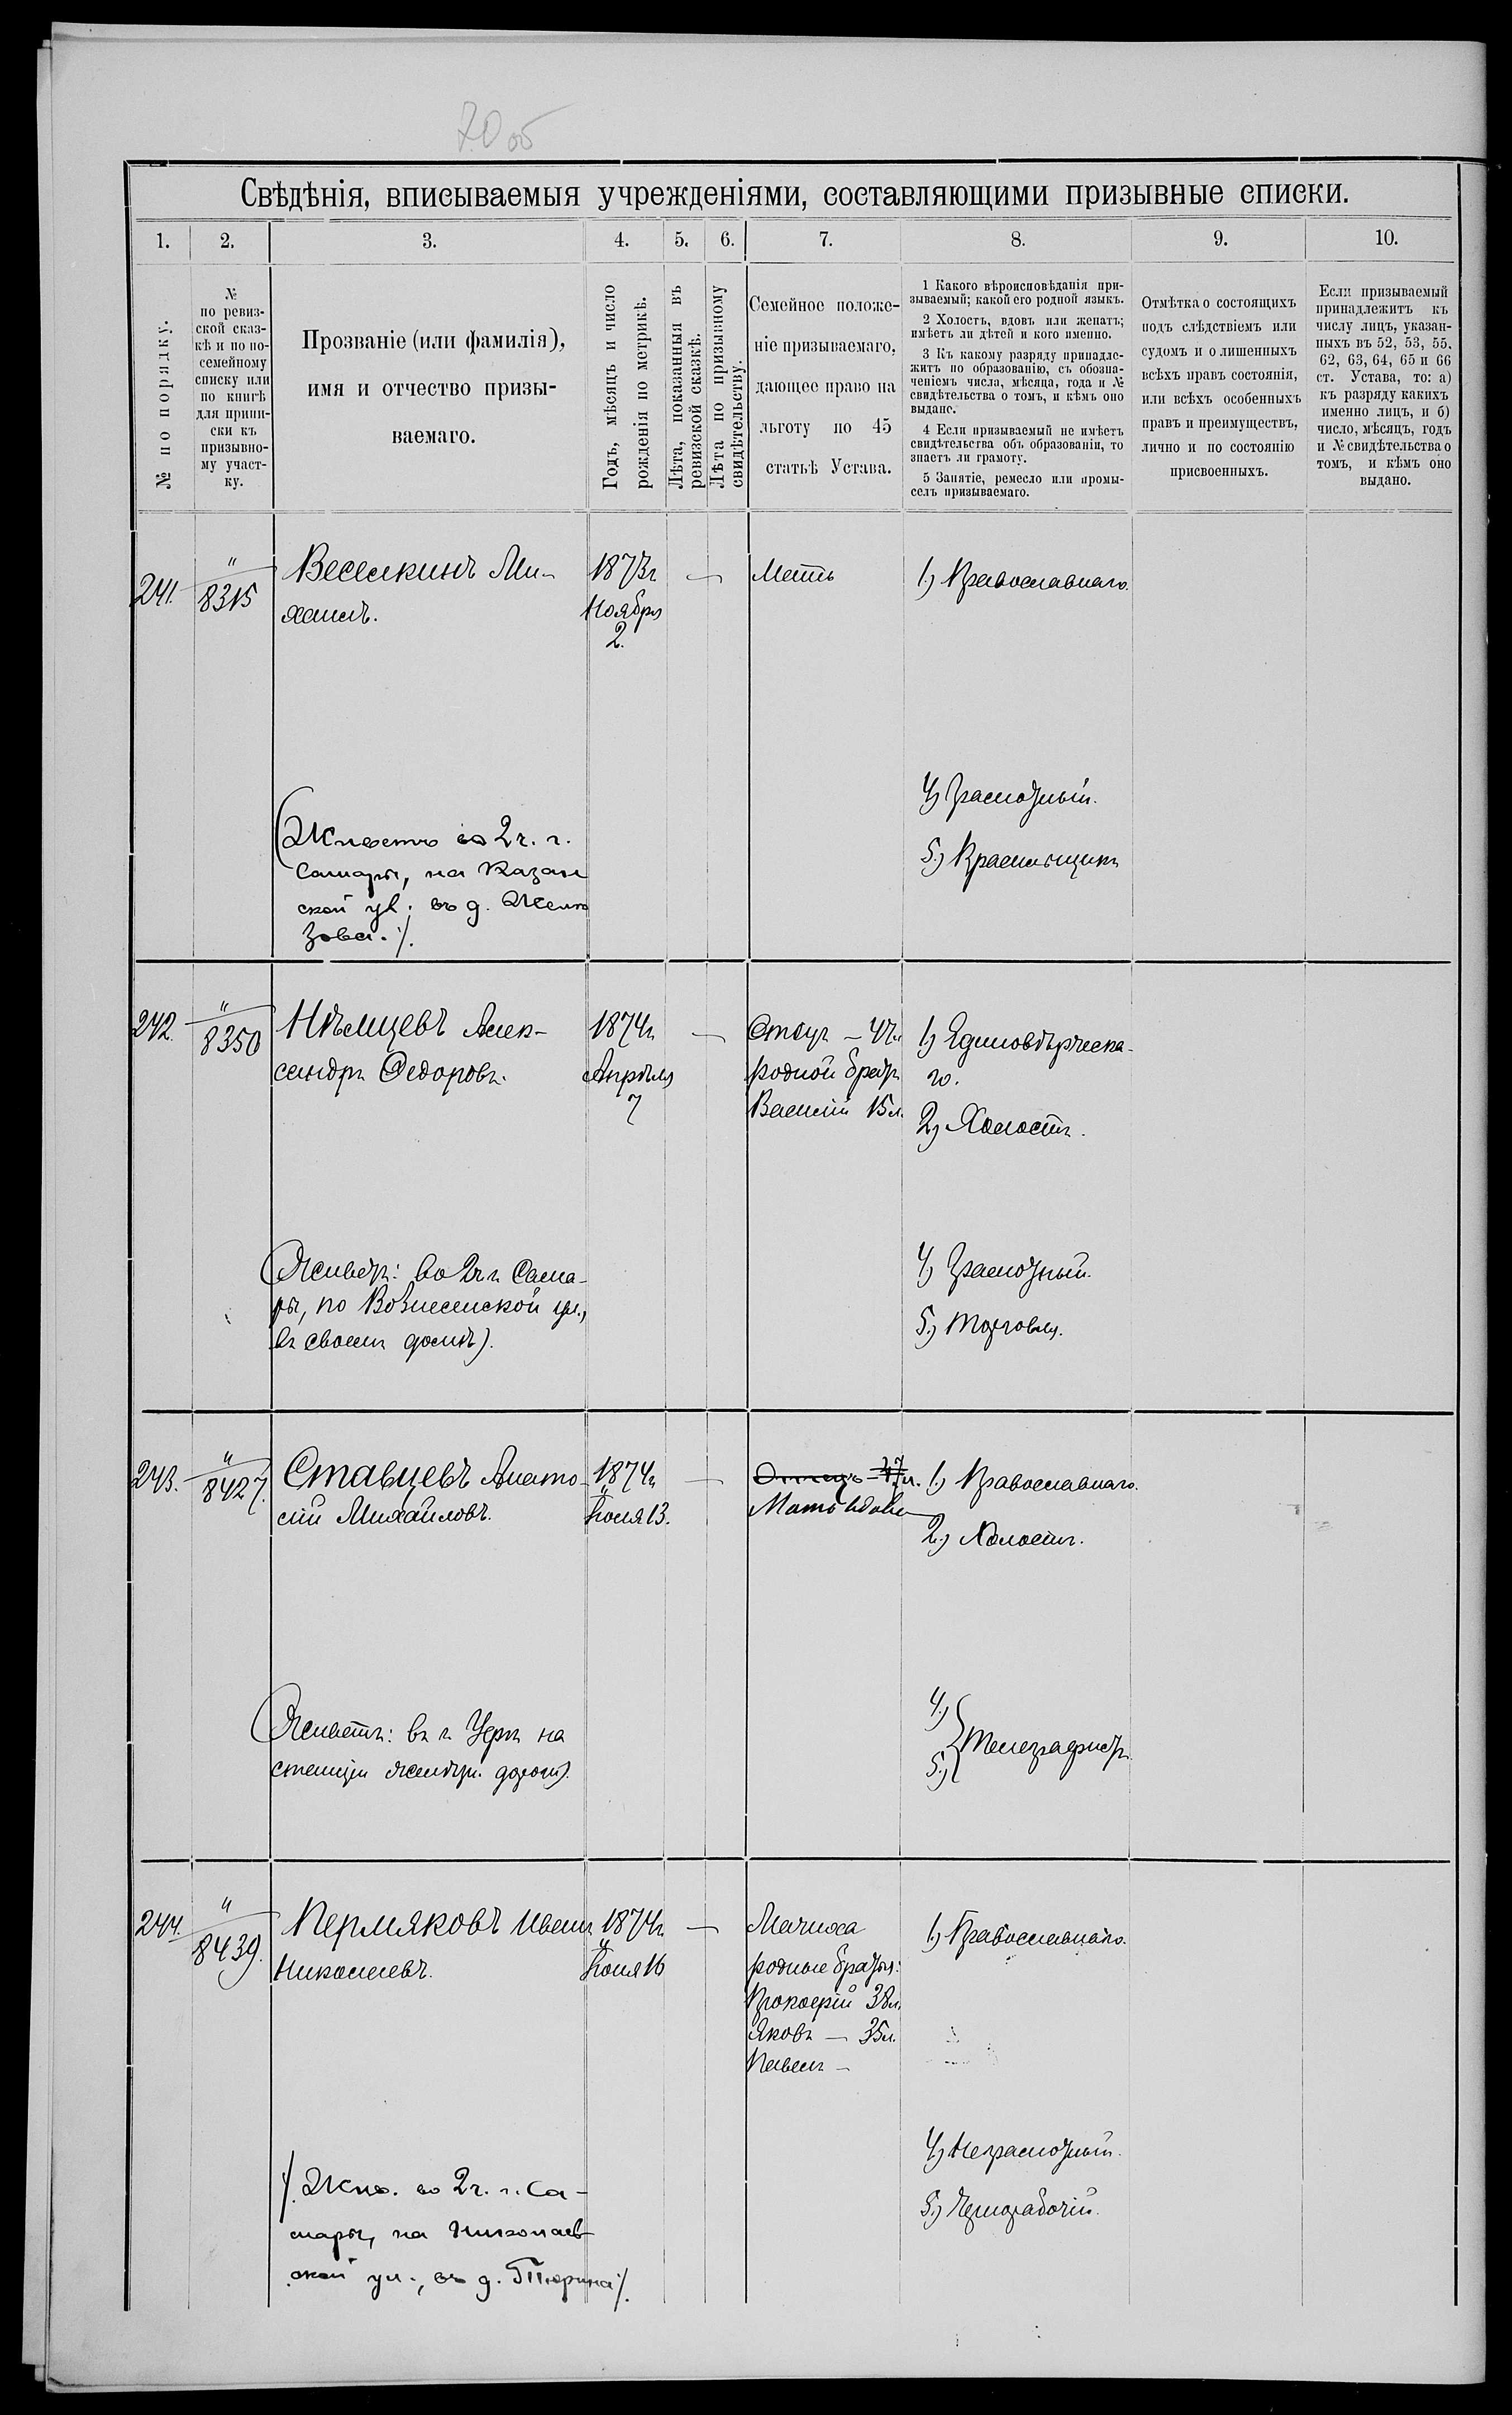 70 об
Свѣдѣнія, вписываемыя учрежденіями, составляющими призывные списки.
1.
2.
3.
4.
5.
6.
7.
8.
9.
10.
№ по порядку.
№
по ревиз-
ской сказ-
кѣ и по по-
семейному
списку или
по книгѣ
для припи-
ски къ
призывно-
му участ-
ку.
Прозваніе (или фамилія),
имя и отчество призы-
ваемаго.
Годъ, мѣсяцъ и число
рожденія по метрикѣ.
Лѣта, показанныя въ
ревизской сказкѣ.
Лѣта по призывному
свидѣтельству.
Семейное положе-
ніе призываемаго,
дающее право на
льготу по 45
статьѣ Устава.
1 Какого вѣроисповѣданія при-
зываемый; какой его родной языкъ.
2 Холостъ, вдовъ или женатъ;
имѣетъ ли дѣтей и кого именно.
3 Къ какому разряду принадле-
житъ по образованію, съ обозна-
ченіемъ числа, мѣсяца, года и №
свидѣтельства о томъ, и кѣмъ оно
выдано.
4 Если призываемый не имѣетъ
свидѣтельства объ образованіи, то
знаетъ ли грамоту.
5 Занятіе, ремесло или промы-
селъ призываемаго.
Отмѣтка о состоящихъ
подъ слѣдствіемъ или
судомъ и о лишенныхъ
всѣхъ правъ состоянія,
или всѣхъ особенныхъ
правъ и преимуществъ,
лично и по состоянію
присвоенныхъ.
Если призываемый
принадлежитъ къ
числу лицъ, указан-
ныхъ въ 52, 53, 55,
62, 63, 64, 65 и 66
ст. Устава, то: а)
къ разряду какихъ
именно лицъ, и б)
число, мѣсяцъ, годъ
и № свидѣтельства о
томъ, и кѣмъ оно
выдано.
241.
"
8315
Веселкинъ Ми-
хаилъ.
1873 г
Ноября
2.
—
Мать
1) Православнаго.
4) Грамотный.
5.) Красильщикъ
(Живетъ во 2 ч. г.
Самары, на Казан
ской ул. въ д.
зова. /.
242.
"
8350
Нѣмцевъ Алек-
сандръ Федоровъ.
1874 г
Апрѣля
7
—
Отецъ – 47 л
родной братъ
Василій 15 л.
1) Единовѣрческа-
го.
2) Холостъ.
4) Грамотный.
5.) Торговля.
(Живетъ: во 2 ч г Сама-
ры, по Вознесенской ул.,
въ своемъ домѣ).
243.
"
8427.
Ставцевъ Анато-
лій Михайловъ.
1874 г
Іюля 13.
—
Отецъ – 47 л.
Мать вдова
1.) Православнаго.
2.) Холостъ.
4.)
5.) Телеграфистъ.
(Живетъ: въ г. на
станціи желѣзн. дороги).
244.
"
8439.
Пермяковъ Иванъ
Николаевъ.
1874 г.
Іюля 16
—
Мачиха
родные братья:
Прокофій 38 л.
Яковъ – 35 л.
Павелъ –
1.) Православнаго.
4) Неграмотный.
5.) Чернорабочій.
/. Жив. во 2 ч. г. Са-
мары, на Николаев
ской ул., въ д. Тюрина /.